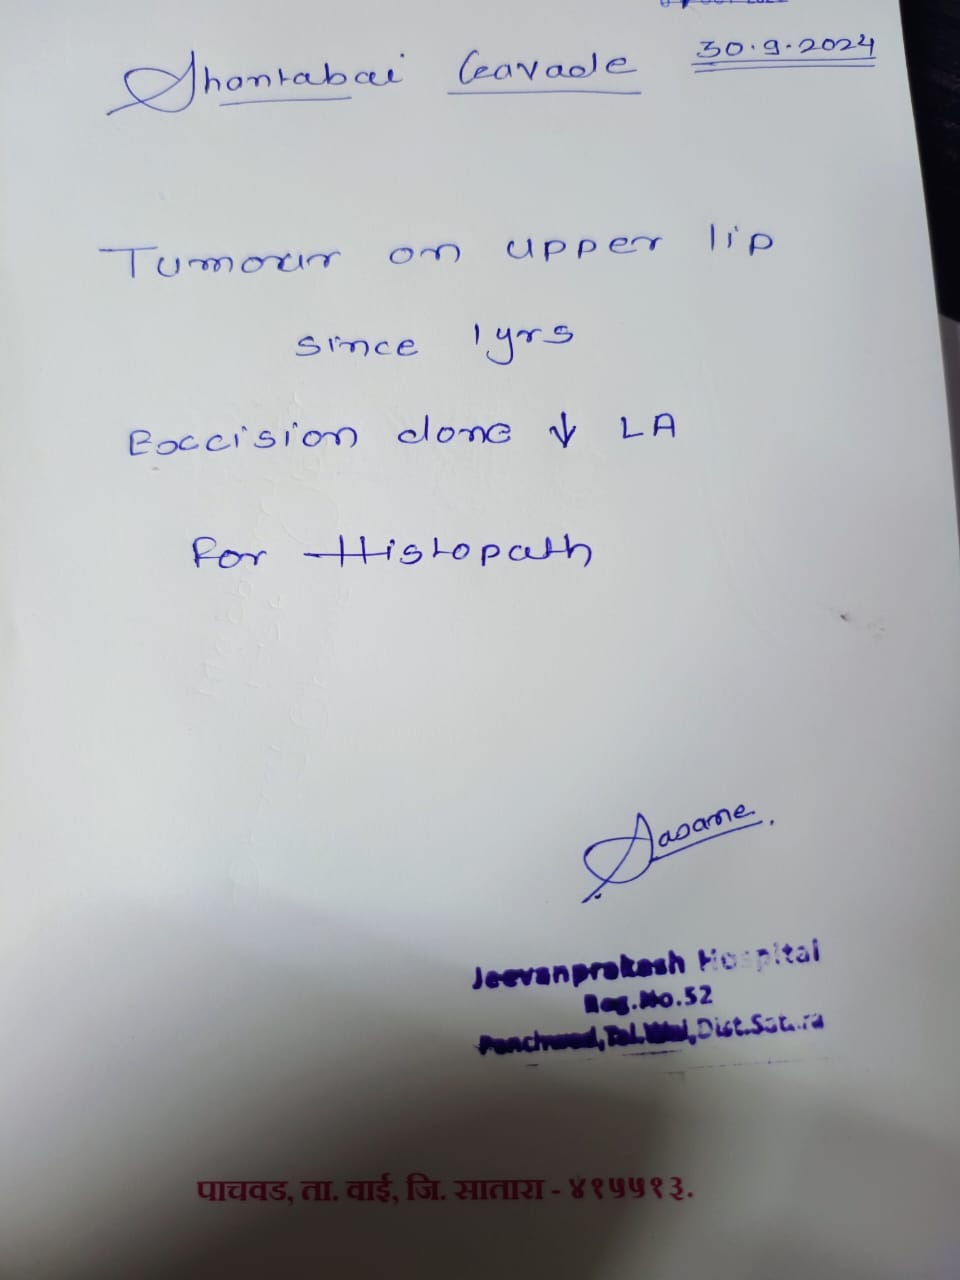 Shantabai Gavade 30.9.2024
Tumour on upper lip
since 1yrs
Excision done ↓ LA
For Histopath
Jeevanprakash Hospital
Reg.No.52
Panchwad,Tal.Wai,Dist.Satara
पाचवड, ता. वाई, जि. सातारा - ४१५५१३.